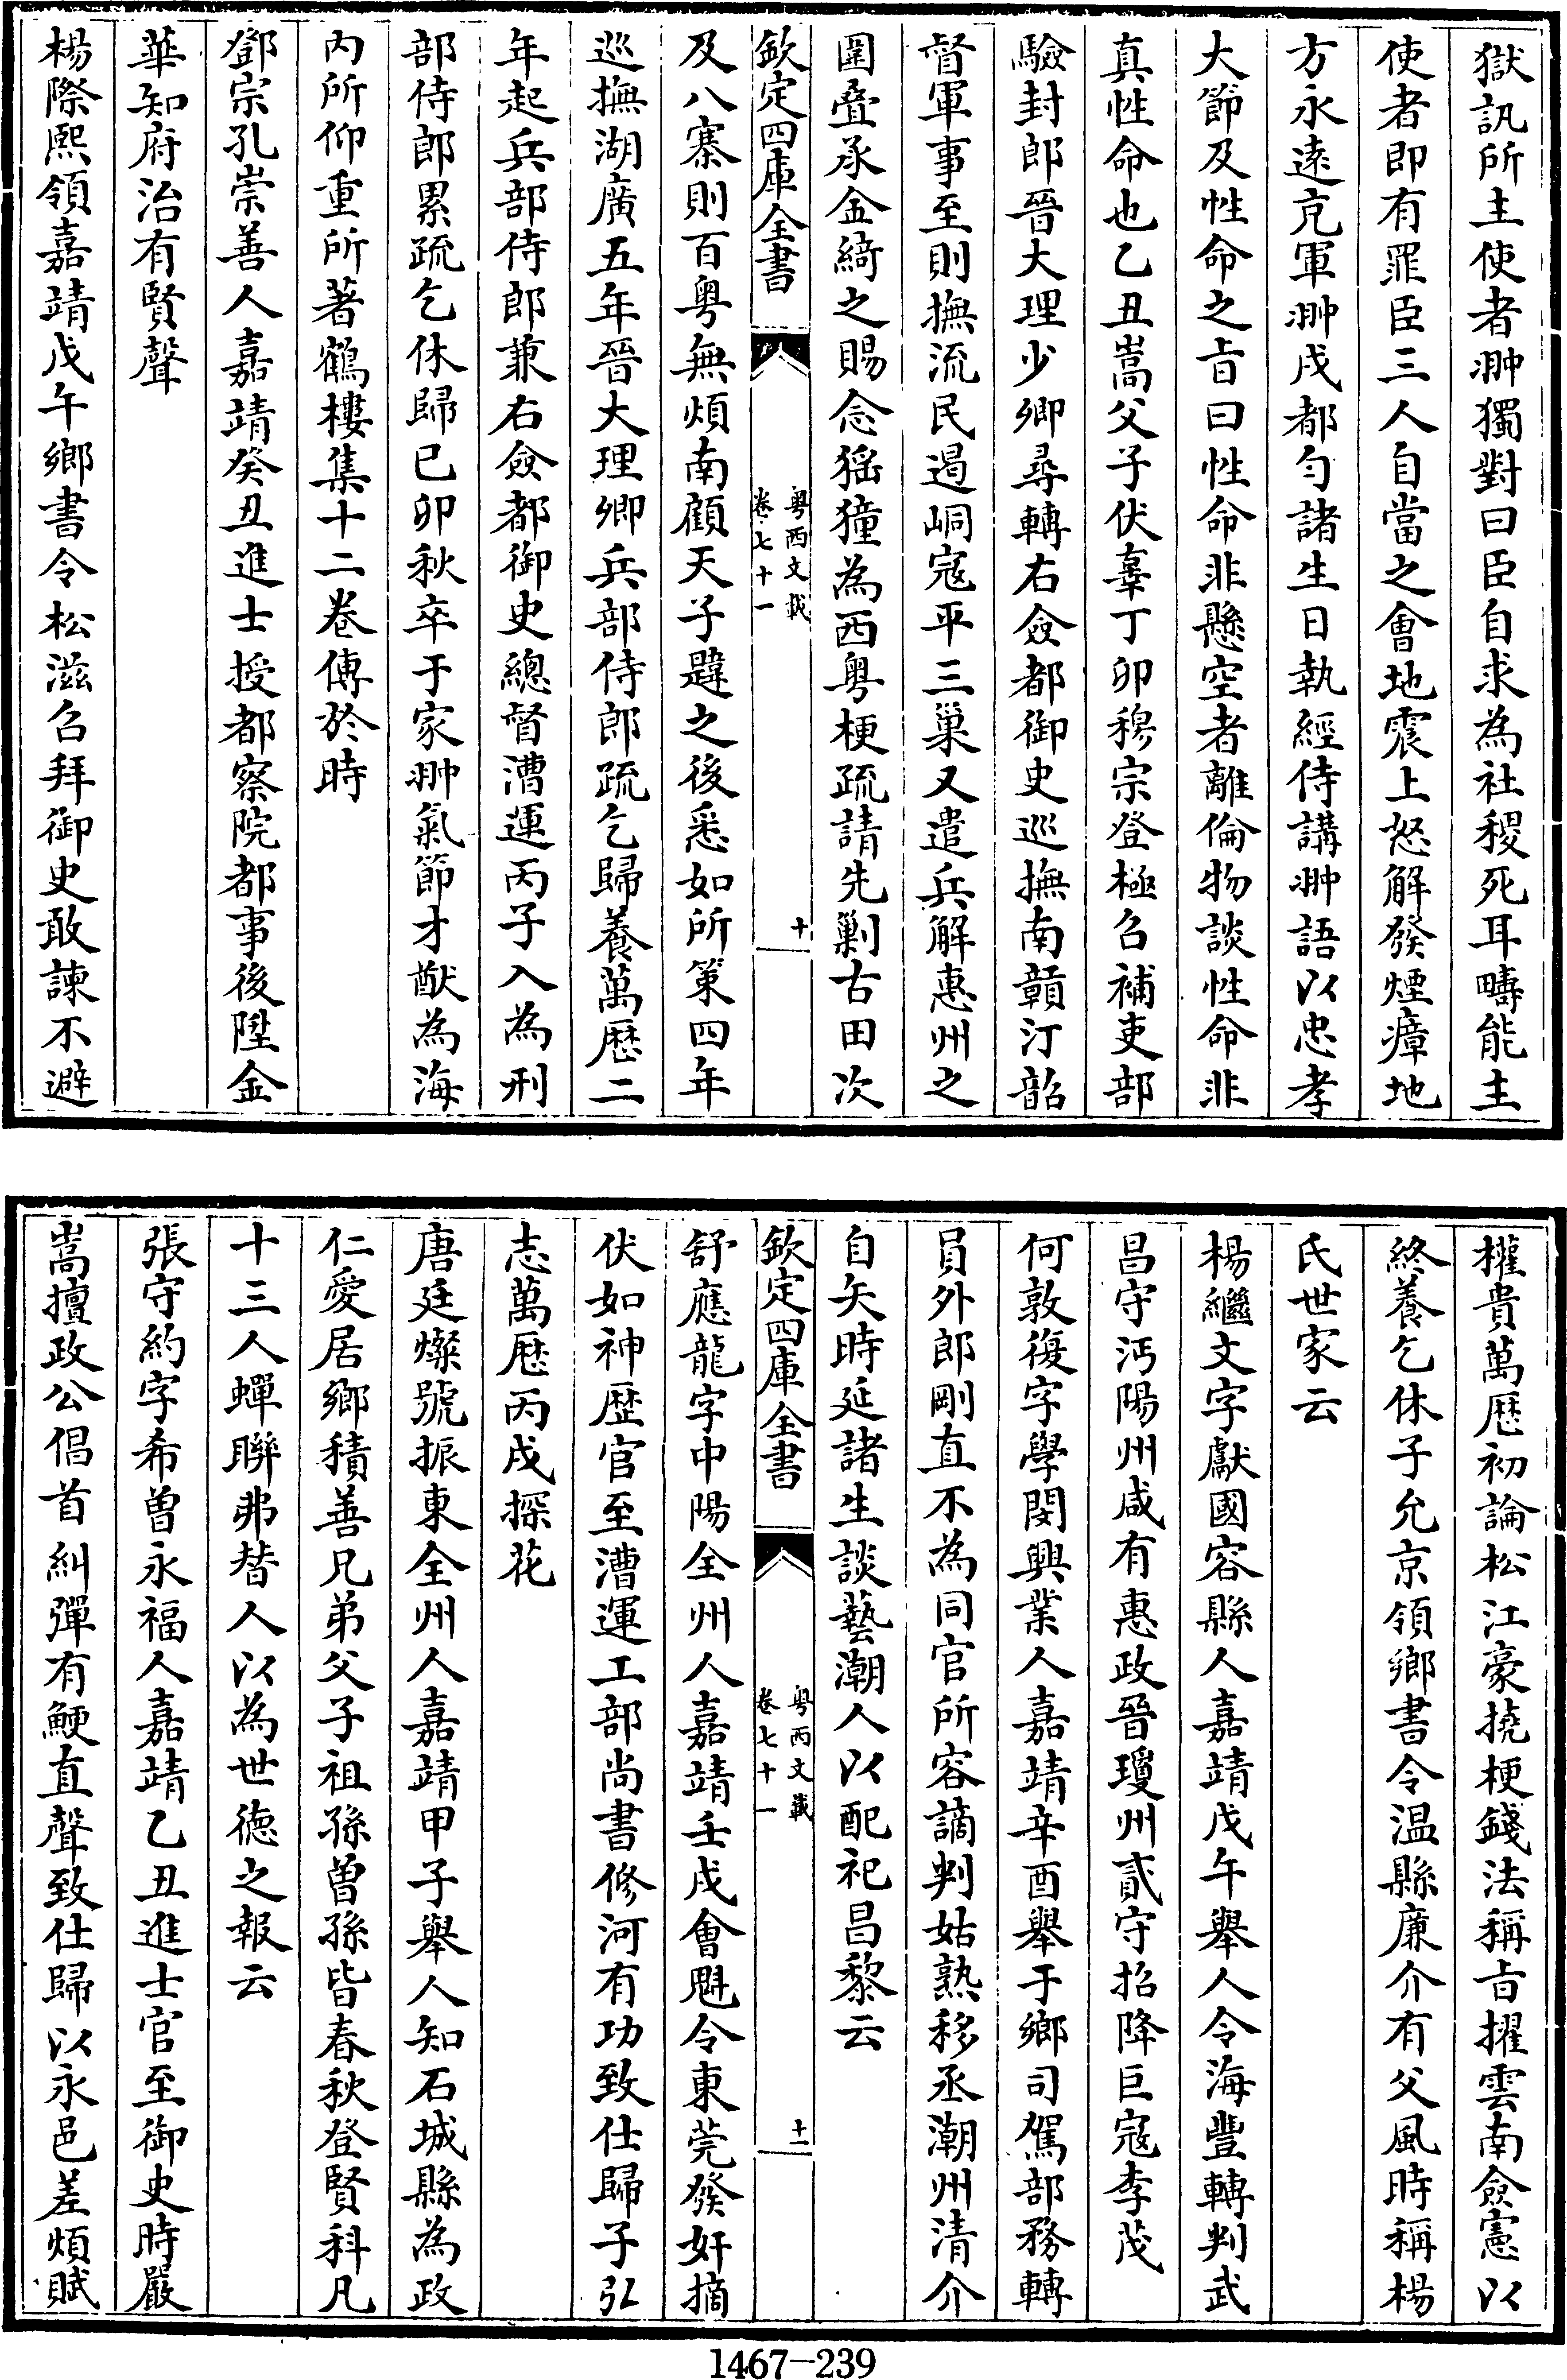 獄訊所主使者翀獨對曰臣自求為社稷死耳疇能主
使者即有罪臣三人自當之會地震上怒解發煙瘴地
方永遠充軍翀戍都勻諸生日執經侍講翀語以忠孝
大節及性命之旨曰性命非懸空者離倫物談性命非
真性命也乙丑嵩父子伏辜丁卯穆宗登極召補吏部
驗封郎晉大理少卿尋轉右僉都御史巡撫南贛汀韶
督軍事至則撫流民遏峒寇平三巢又遣兵解惠州之
圍疊承金綺之賜念猺獞為西粵梗疏請先剿古田次
欽定四庫全書
粵西文載
卷七十一
十
及八寨則百粵無煩南顧天子韙之後悉如所策四年
巡撫湖廣五年晉大理卿兵部侍郎疏乞歸養萬厯二
年起兵部侍郎兼右僉都御史總督漕運丙子入為刑
部侍郎累疏乞休歸已卯秋卒于家翀氣節才猷為海
內所仰重所著鶴樓集十二卷傳於時
鄧宗孔崇善人嘉靖癸丑進士授都察院都事後陞金
華知府治有賢聲
楊際熙領嘉靖戊午鄉書令松滋召拜御史敢諫不避
權貴萬厯初論松江豪撓梗錢法稱旨擢雲南僉憲以
終養乞休子允京領鄉書令温縣廉介有父風時稱楊
氏世家云
楊繼文字獻國容縣人嘉靖戊午舉人令海豐轉判武
昌守沔陽州咸有惠政晉瓊州貳守招降巨寇李茂
何敦復字學閔興業人嘉靖辛酉舉于鄉司駕部務轉
員外郎剛直不為同官所容謫判姑熟移丞潮州清介
自矢時延諸生談藝潮人以配祀昌黎云
欽定四庫全書
粵西文載
卷七十一
十一
舒應龍字中陽全州人嘉靖壬戌會魁令東莞發奸摘
伏如神歷官至漕運工部尚書修河有功致仕歸子弘
志萬厯丙戌探花
唐廷燦號振東全州人嘉靖甲子舉人知石城縣為政
仁愛居鄉積善兄弟父子祖孫曾孫皆春秋登賢科凡
十三人蟬聯弗替人以為世德之報云
張守約字希曾永福人嘉靖乙丑進士官至御史時嚴
嵩擅政公倡首糾彈有鯁直聲致仕歸以永邑差煩賦
1467-239